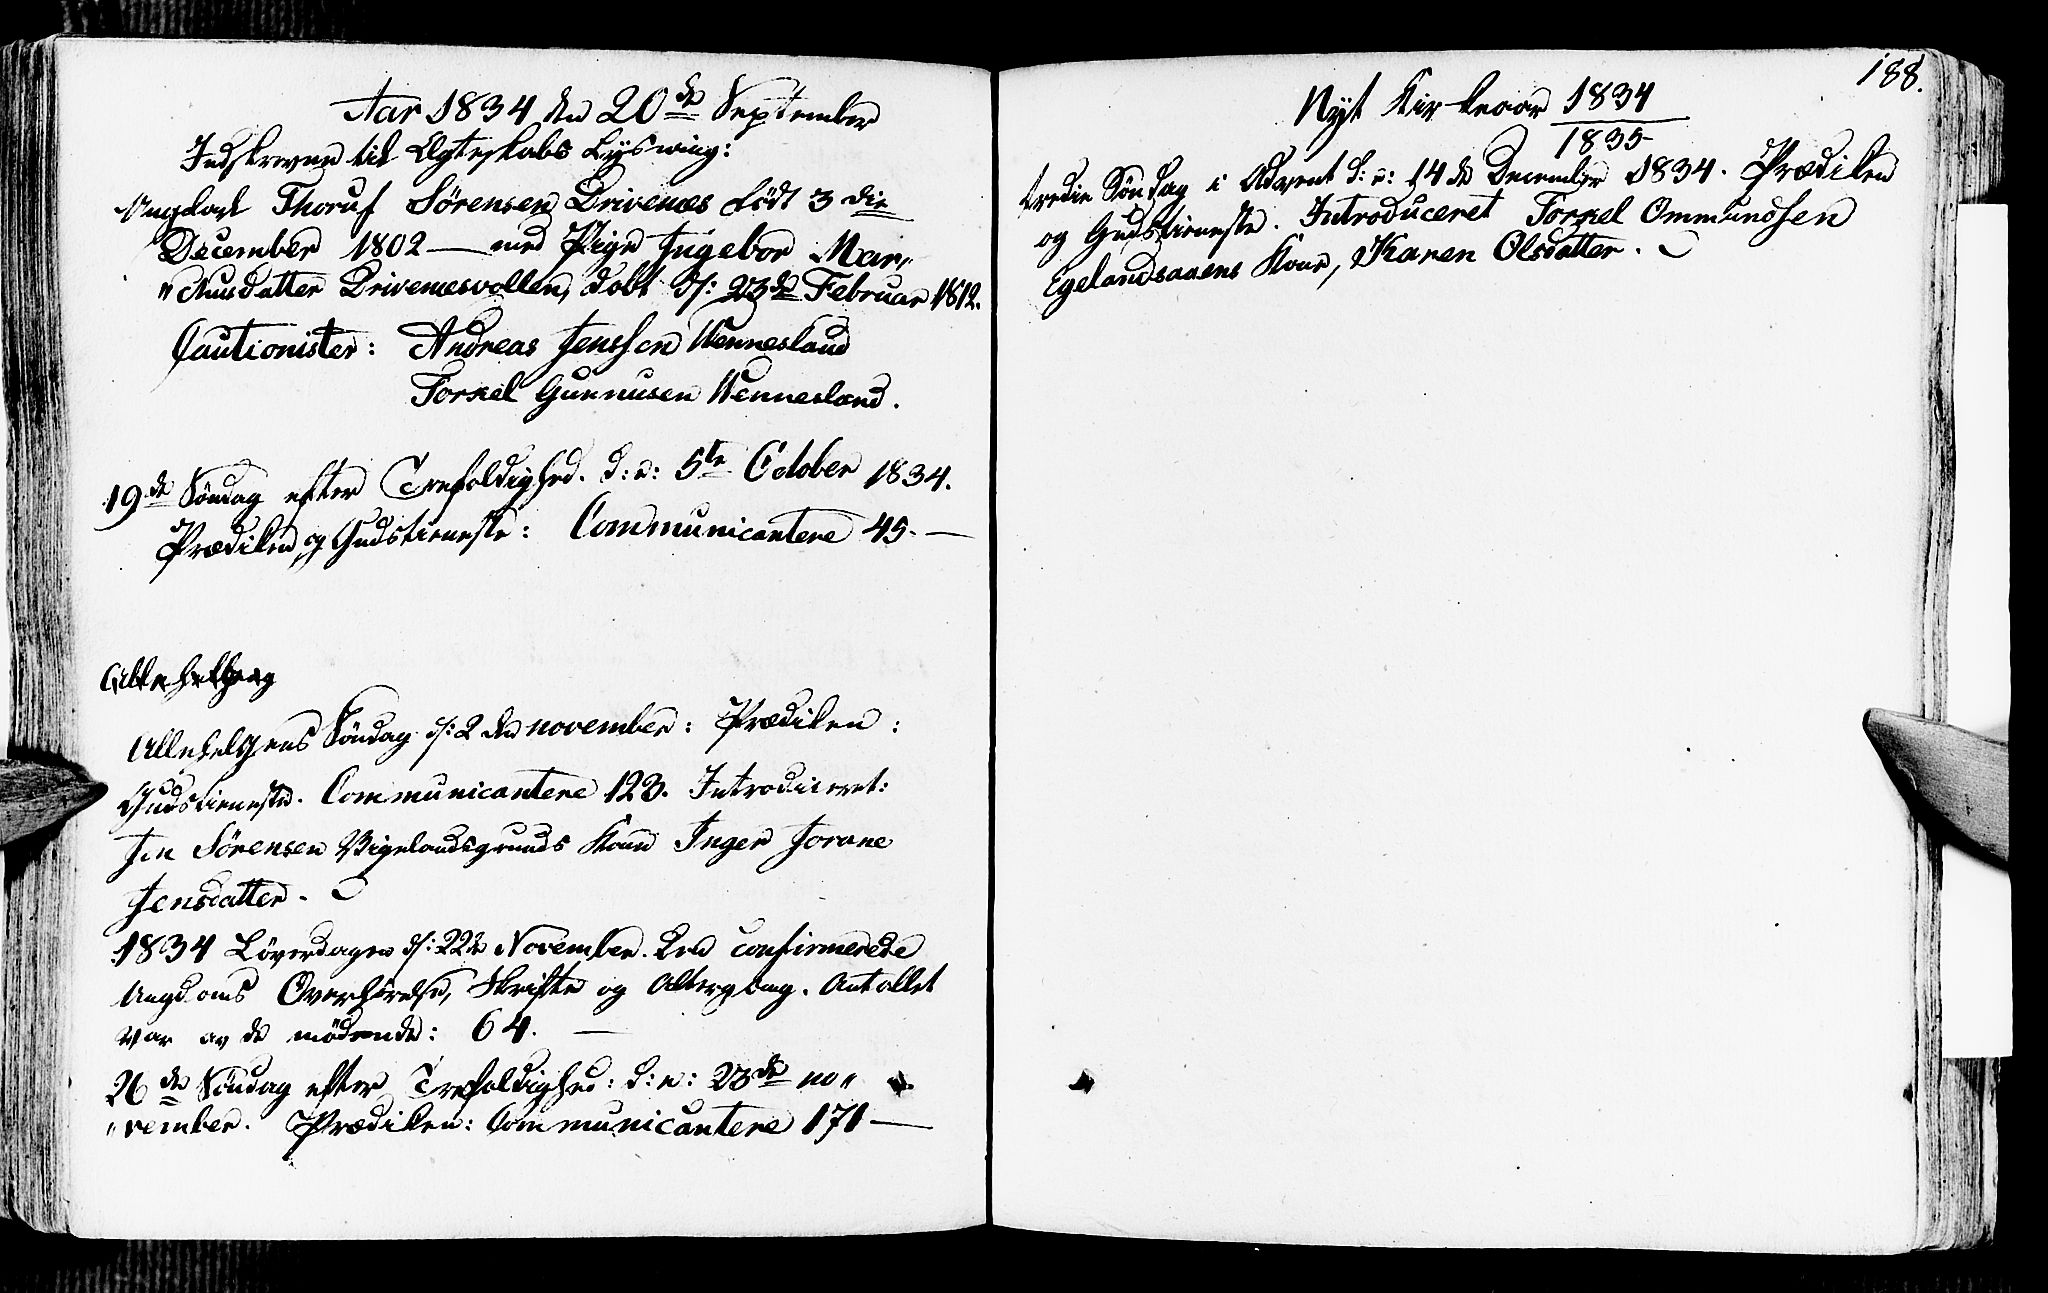 Aar 1834 den 20de September
Indskreven til Ægteskabs Lysning:
Ungkarl Thoruf Sörensen Drivenæs födt 3die
December 1802 — med Pige Ingebor Mar„
„kusdatter Drivenæsvollen, döbt d: 23de Februar 1812.
Cautionister: Andreas Jenssen Wennesland
Torkel Gunnusen Wennesland.
19de Söndag efter Trefoldighed. d: e: 5te October 1834.
Prædiken og Gudstieneste: Communicantere 45. —
Allehelgens Söndag d: 2den november: Prædiken:
Gudstieneste. Communicantere 123. Introduceret:
Jen Sörensen Vigelandsgrunds Kone Inger Jorane
Jensdatter.
1834 Löverdagen d: 22de November. Den confirmerede
Ungdoms Overhörelse, Skrifte og Altergang. Antallet
var av de mödende: 64. —
26de Söndag efter Trefoldighed: d: e: 23de no„
„vember. Prædiken: Communicantere 171 —
188.
Nyt Kirkeaar 1834
1835
tredie Söndag i Advent d: e: 14de December 1834. Prædiken
og Gudstieneste. Introduceret Torkel Ommundsen
Egelandsaaens Kone, Karen Olsdatter.